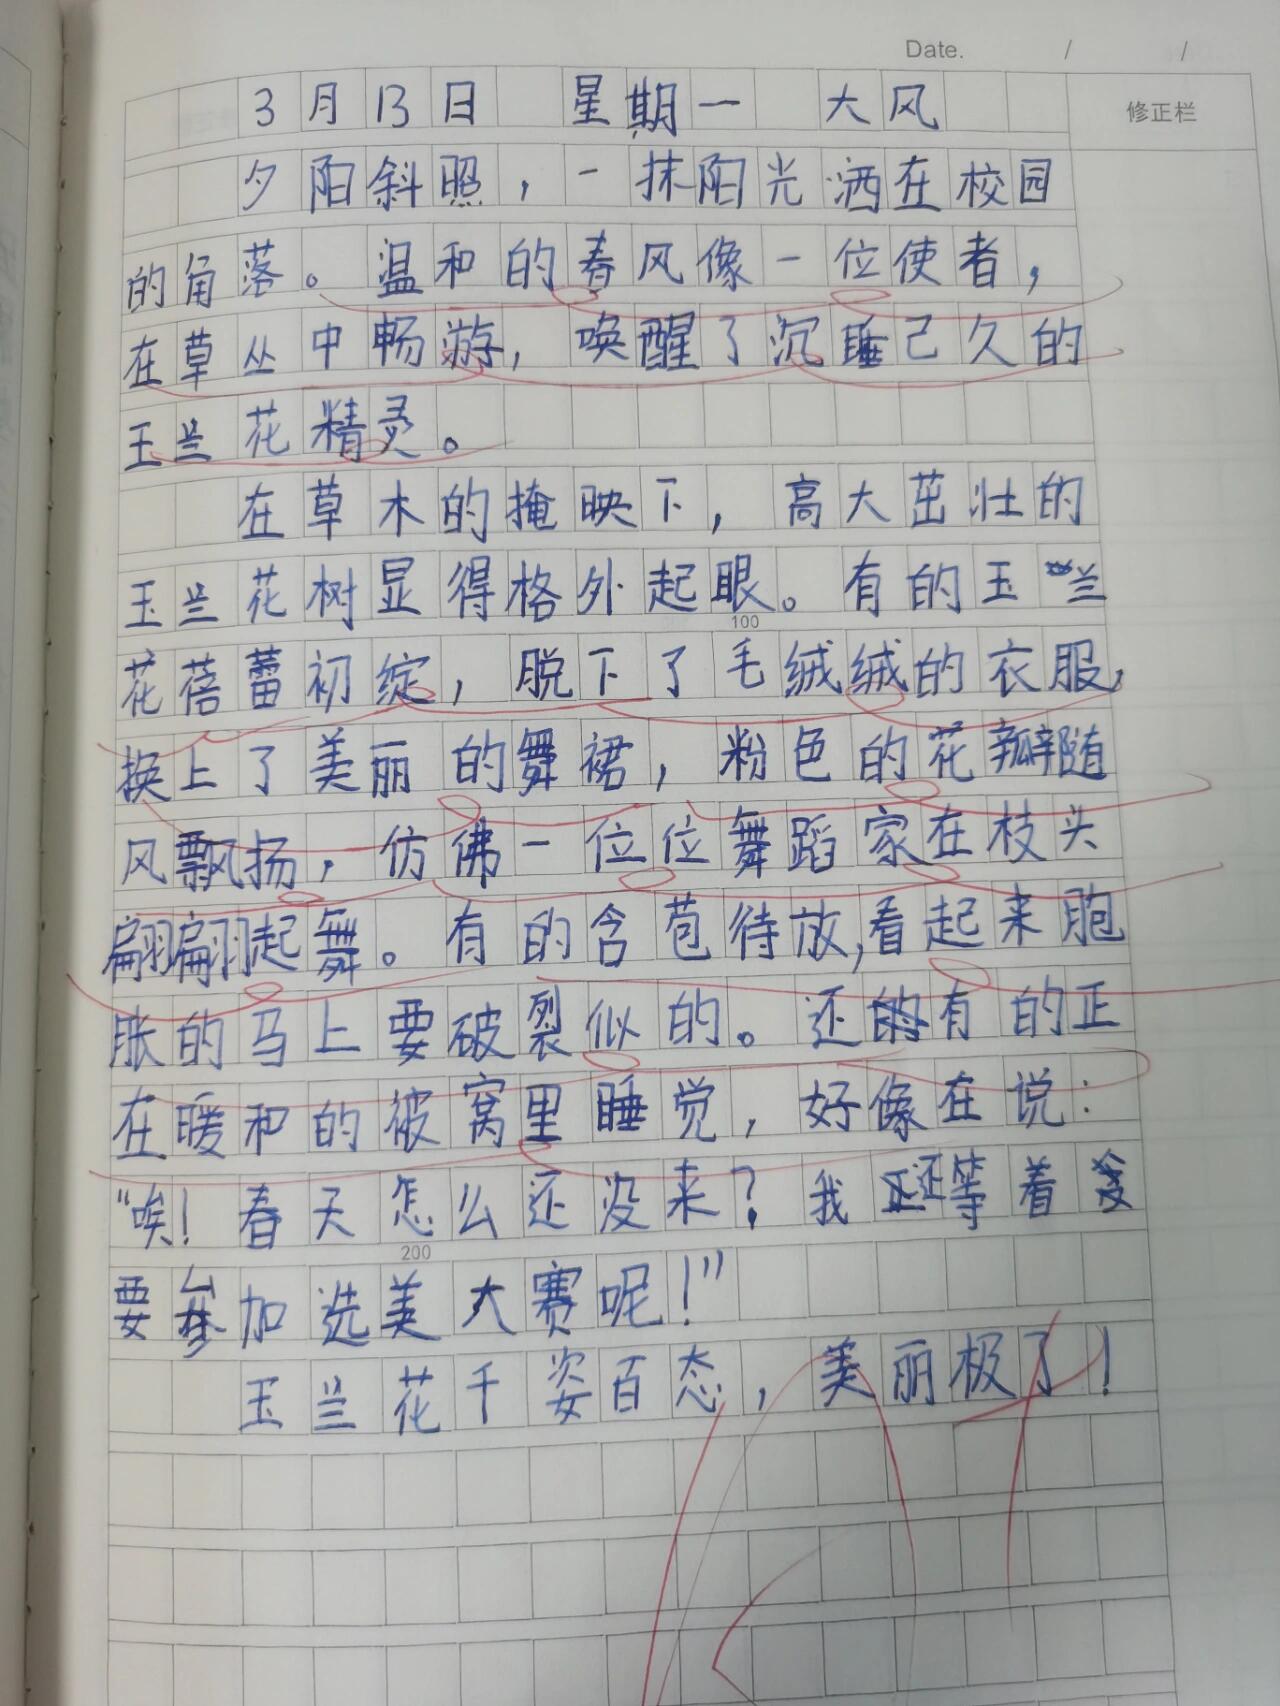 Date. / /
修正栏
3月13日 星期一 大风
夕阳斜照，一抹阳光洒在校园
的角落。温和的春风像一位使者，
在草丛中畅游，唤醒了沉睡己久的
玉兰花精灵。
在草木的掩映下，高大茁壮的
玉兰花树显得格外起眼。有的玉兰
100
花蓓蕾初绽，脱下了毛绒绒的衣服，
换上了美丽的舞裙，粉色的花瓣随
风飘扬，仿佛一位位舞蹈家在枝头
翩翩起舞。有的含苞待放，看起来胞
胀的马上要破裂似的。还有的正
在暖和的被窝里睡觉，好像在说：
“唉！春天怎么还没来？我还等着
200
要参加选美大赛呢！”
玉兰花千姿百态，美丽极了！